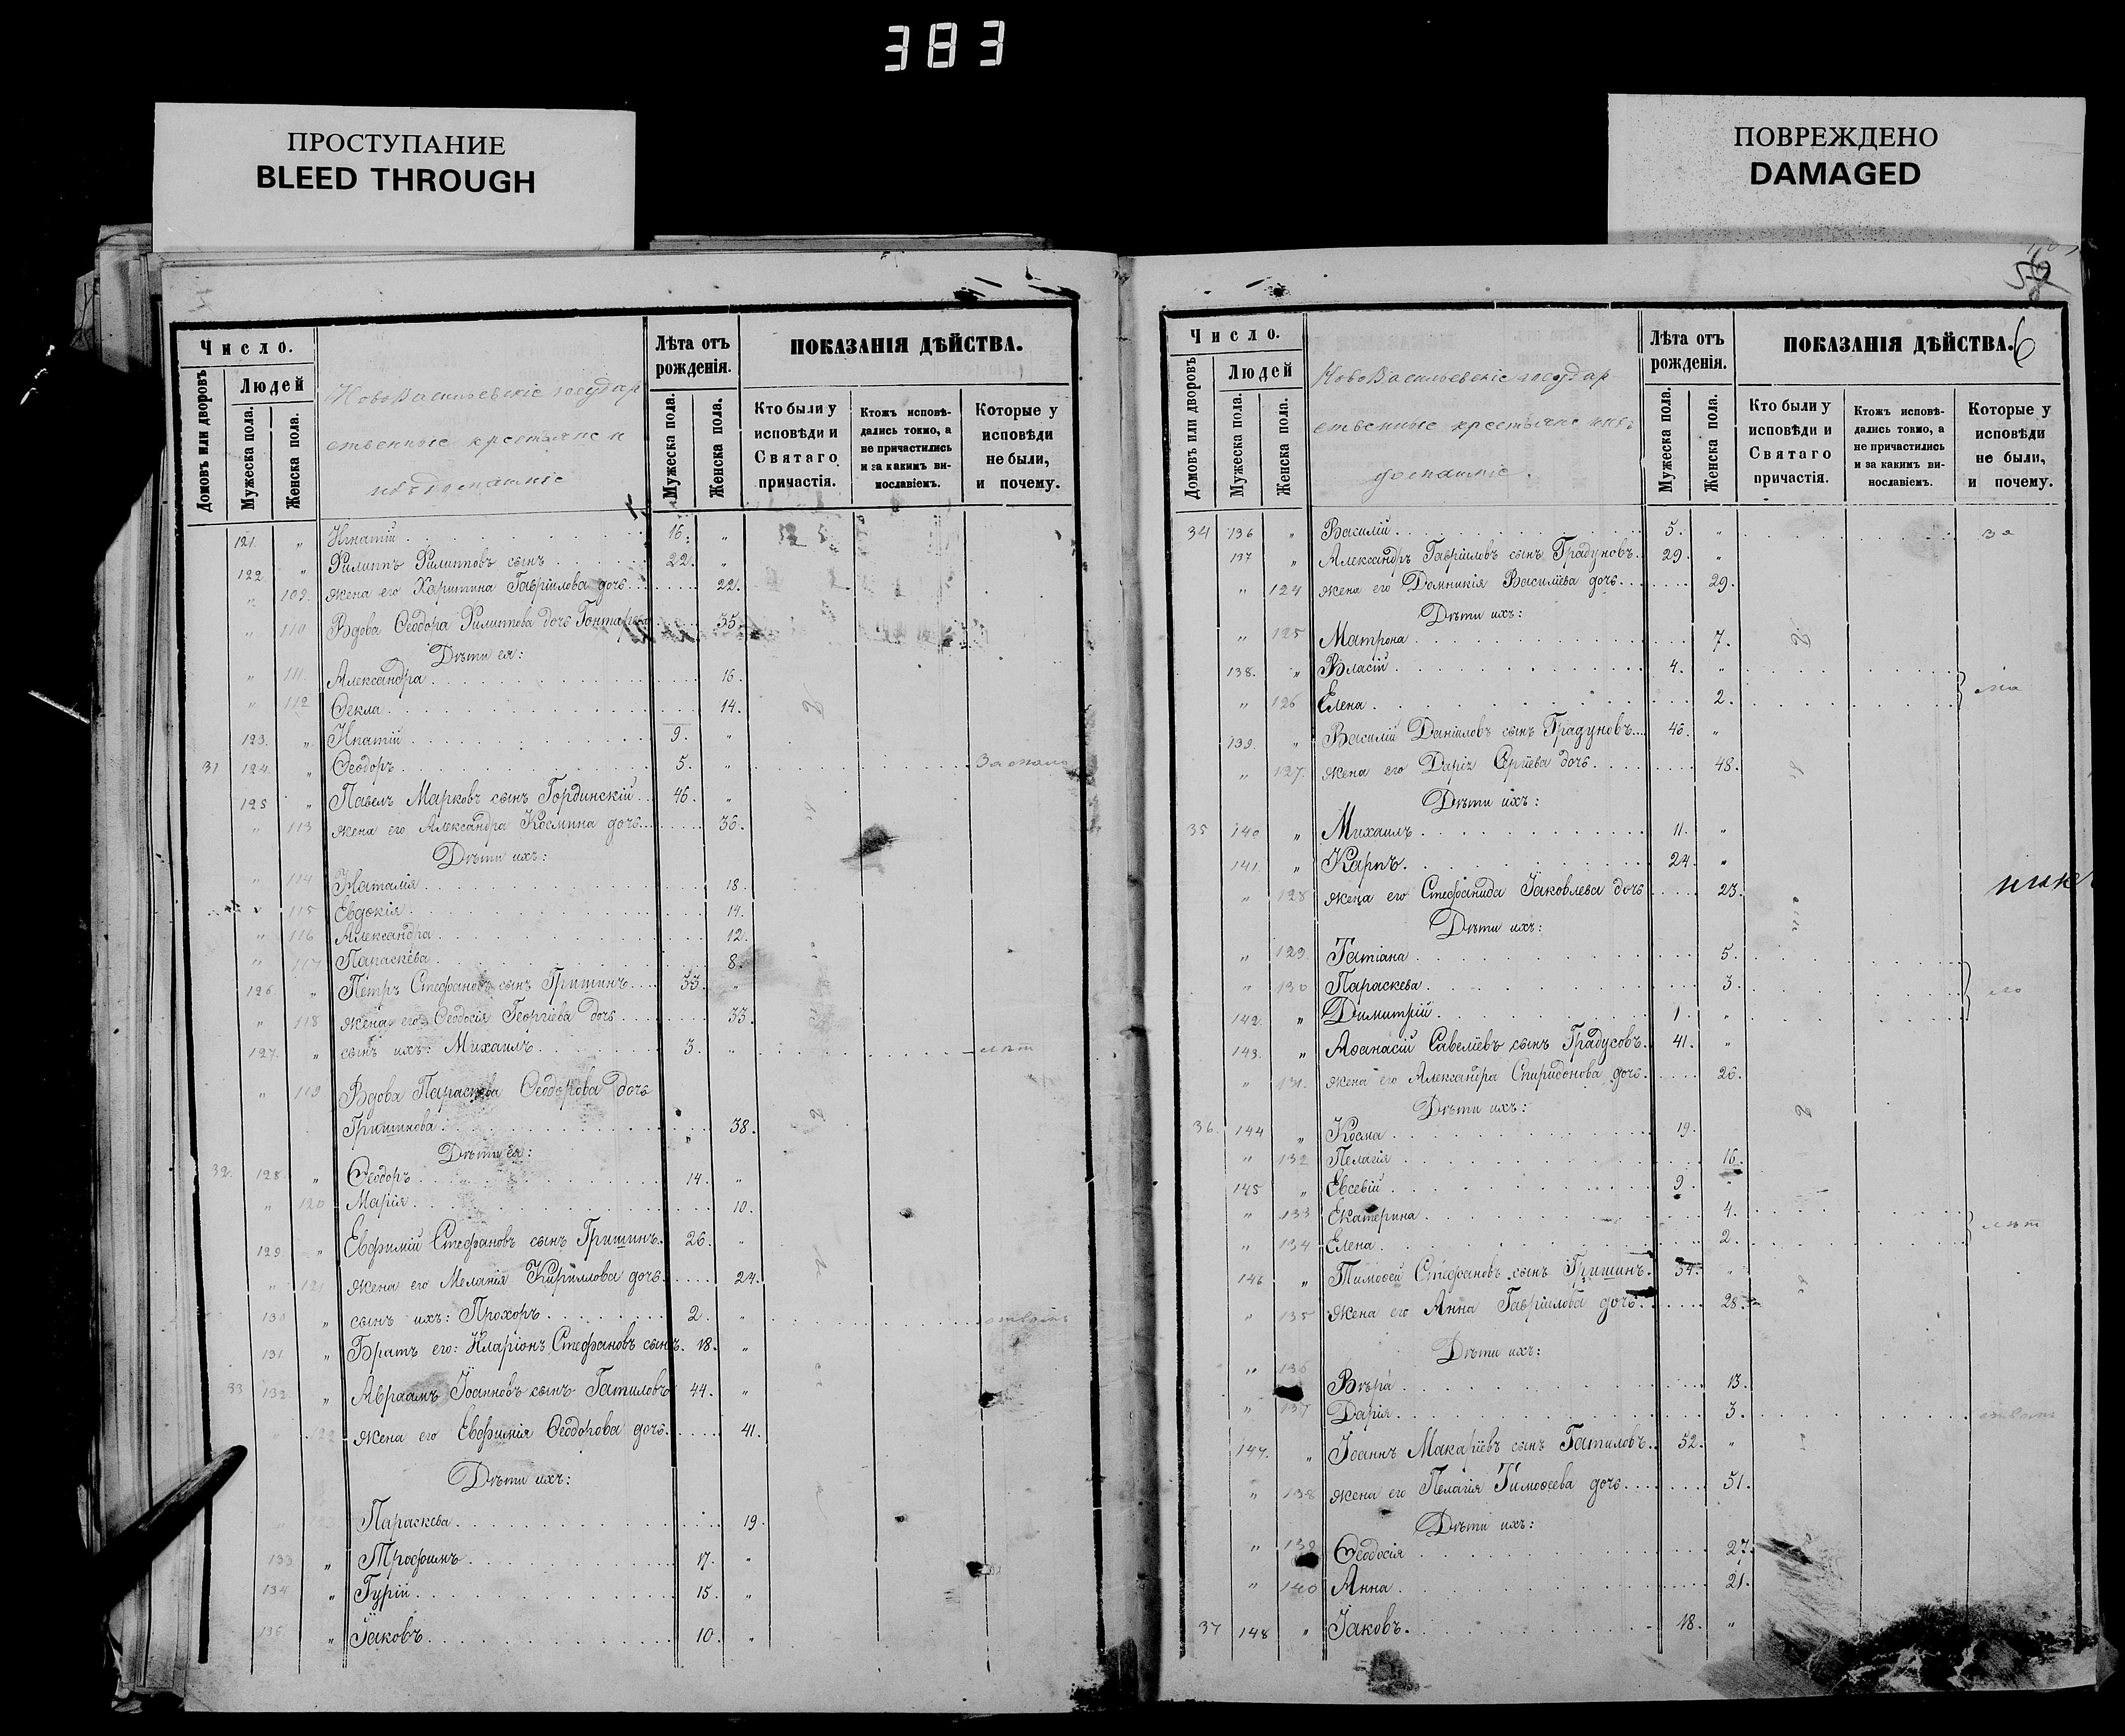 383
ПРОСТУПАНИЕ
BLEED THROUGH
ПОВРЕЖДЕНО
DAMAGED
Число.
Людей
Домовъ или дворовъ
Мужеска пола.
Женска пола.
НовоВасильевскіе государ
ственные крестьяне и
ихъ домашніе
Лѣта отъ рожденія.
Мужеска пола.
Женска пола.
ПОКАЗАНІЯ ДѢЙСТВА.
Кто были у исповѣди и Святаго причастія.
Ктожъ исповѣ-дались токмо, а не причастились и за какимъ ви-нословіемъ.
Которые у исповѣди не были, и почему.
121. „ Игнатій 16. „
122. „ Филиппъ Филипповъ сынъ 22. „
„ 109. жена его Харитина Гавріилова дочь 22.
„ 110 Вдова Ѳеодора Филиппова дочь 35.
Дѣти ея:
„ 111. Александра 16.
„ 112 Ѳекла 14.
123. „ Игнатій 9. „
31 124. „ Ѳеодоръ 5. „
125 „ Павелъ Марковъ сынъ Гординскій 46. „
„ 113 жена его Александра Космина дочь 36.
Дѣти ихъ:
„ 114 Наталія 18.
„ 115 Евдокія 14.
„ 116 Александра 12.
„ 117 Параскева 8.
126 „ Петръ Стефановъ сынъ Гришинъ 33. „
„ 118 жена его Ѳеодосія Георгіева дочь 33.
127. „ сынъ ихъ: Михаилъ 3. „ лѣт
„ 119 Вдова Параскева Ѳеодорова дочь
Гришинова „ 38.
Дѣти ея:
32. 128. „ Ѳеодоръ 14. „
„ 120 Марія 10.
129 „ Евфимій Стефановъ сынъ Гришинъ. 26. „
„ 121 жена его Меланія Кириллова дочь 24.
130 „ сынъ ихъ: Прохоръ 2. „
131. „ Братъ его: Иларіонъ Стефановъ сынъ. 18. „
33 132. „ Авраамъ Іоанновъ сынъ Гатиловъ 44. „
„ 122 жена его Евфимія Ѳеодорова дочь. 41.
Дѣти ихъ:
„ 123 Параскева 19.
133 „ Трофимъ 17. „
134 „ Гурій 15. „
135 „ Іаковъ 10. „
6
Число.
Людей
Домовъ или дворовъ
Мужеска пола.
Женска пола.
НовоВасильевскіе государ
ственные крестьяне и ихъ
домашніе.
Лѣта отъ рожденія.
Мужеска пола.
Женска пола.
ПОКАЗАНІЯ ДѢЙСТВА.
Кто были у исповѣди и Святаго причастія.
Ктожъ исповѣ-дались токмо, а не причастились и за какимъ ви-нословіемъ.
Которые у исповѣди не были, и почему.
34 136 „ Василій 5. „ за
137 „ Александръ Гавріиловъ сынъ Градуновъ 29. „
„ 124 жена его Домникія Василіева дочь 29.
Дѣти ихъ:
„ 125 Матрона 7.
138. „ Власій 4. „
„ 126 Елена 2.
139. „ Василій Даніиловъ сынъ Градуновъ 46. „
„ 127. жена его Дарія Сергіева дочь 48.
Дѣти ихъ:
35 140 „ Михаилъ 11. „
141. „ Карпъ 24. „
„ 128 жена его Стефанида Іаковлева дочь 23.
Дѣти ихъ:
„ 129 Татіана 5.
„ 130 Параскева 3.
142. „ Димитрій 1. „
143. „ Аѳанасій Савеліевъ сынъ Градусовъ. 41. „
„ 131. жена его Александра Спиридонова дочь 26.
Дѣти ихъ:
36. 144 „ Косма 19.
„ 132 Пелагія 16.
145 „ Евсевій 9. „
„ 133 Екатерина 4.
„ 134 Елена 2. лѣт
146 „ Тимоѳей Стефановъ сынъ Гришинъ. 34. „
„ 135 жена его Анна Гавріилова дочь. 28.
Дѣти ихъ:
„ 136 Вѣра 13.
„ 137 Дарія 3.
147. „ Іоаннъ Макаріевъ сынъ Гатиловъ. 52. „
„ 138 жена его Пелагія Тимоѳеева дочь 51.
Дѣти ихъ:
„ 139 Ѳеодосія 27.
„ 140 Анна 21.
37 148 „ Іаковъ. 18. „